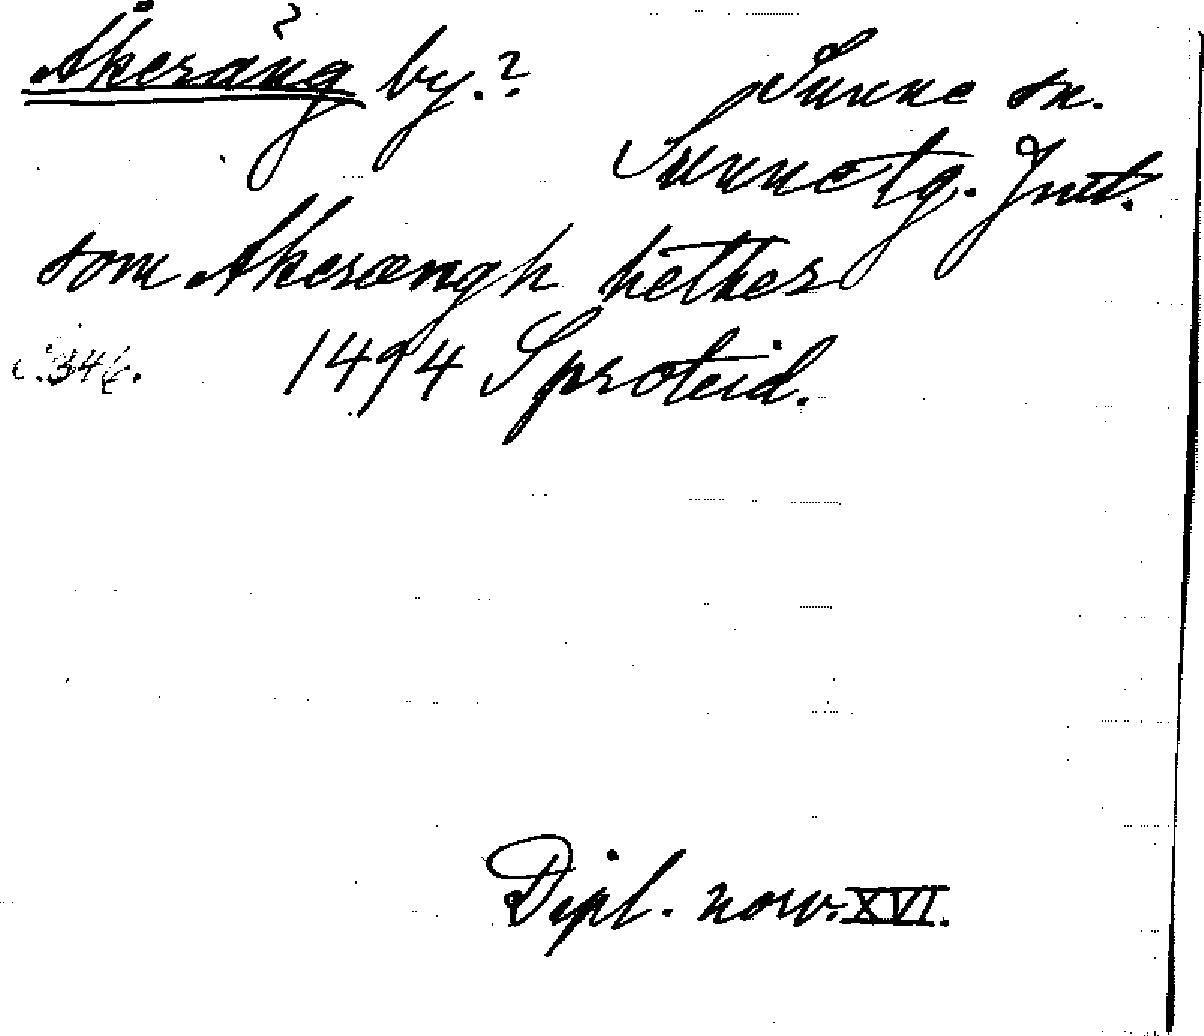 Åkeräng by.?
Sunne sn.
Sunne tg. Jmt.
som Akerængh hether
s. 346. 1494 Sproteid.
Dipl. norv. XVI.